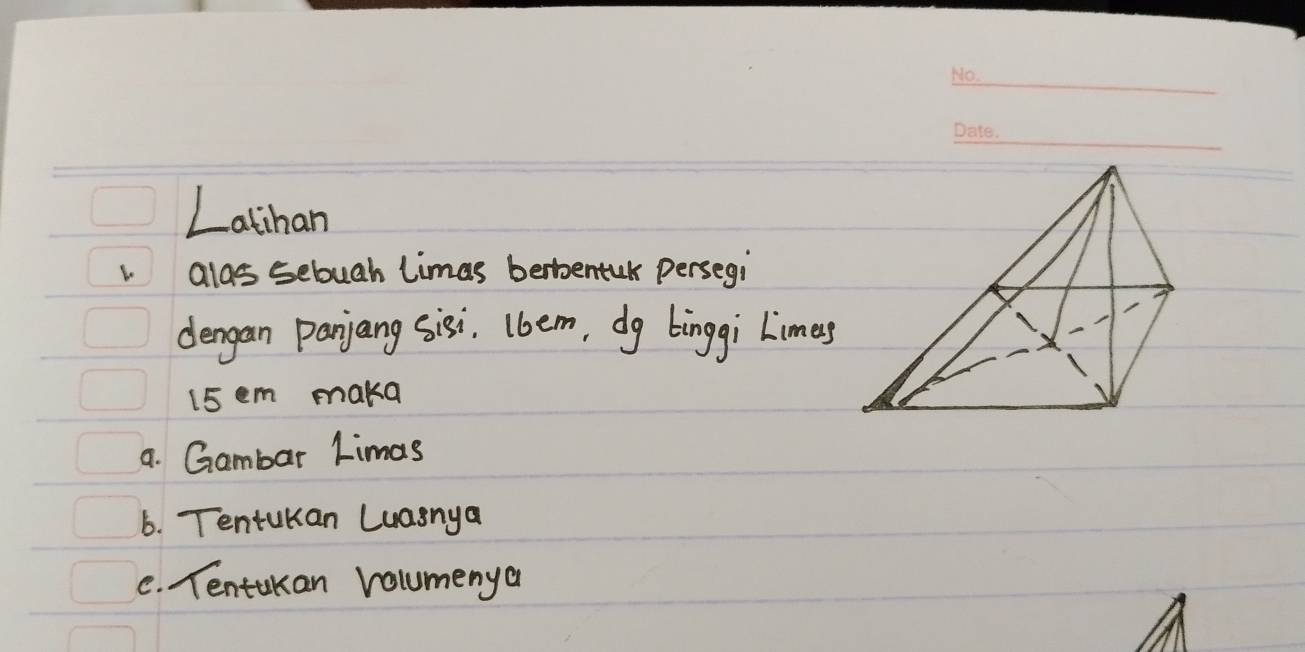 No.
Date.
Latihan
1. alas sebuah limas berbentuk persegi
dengan panjang sisi. 16cm, dg tinggi Limas
15 cm maka
a. Gambar Limas
b. Tentukan Luasnya
c. Tentukan volumenya